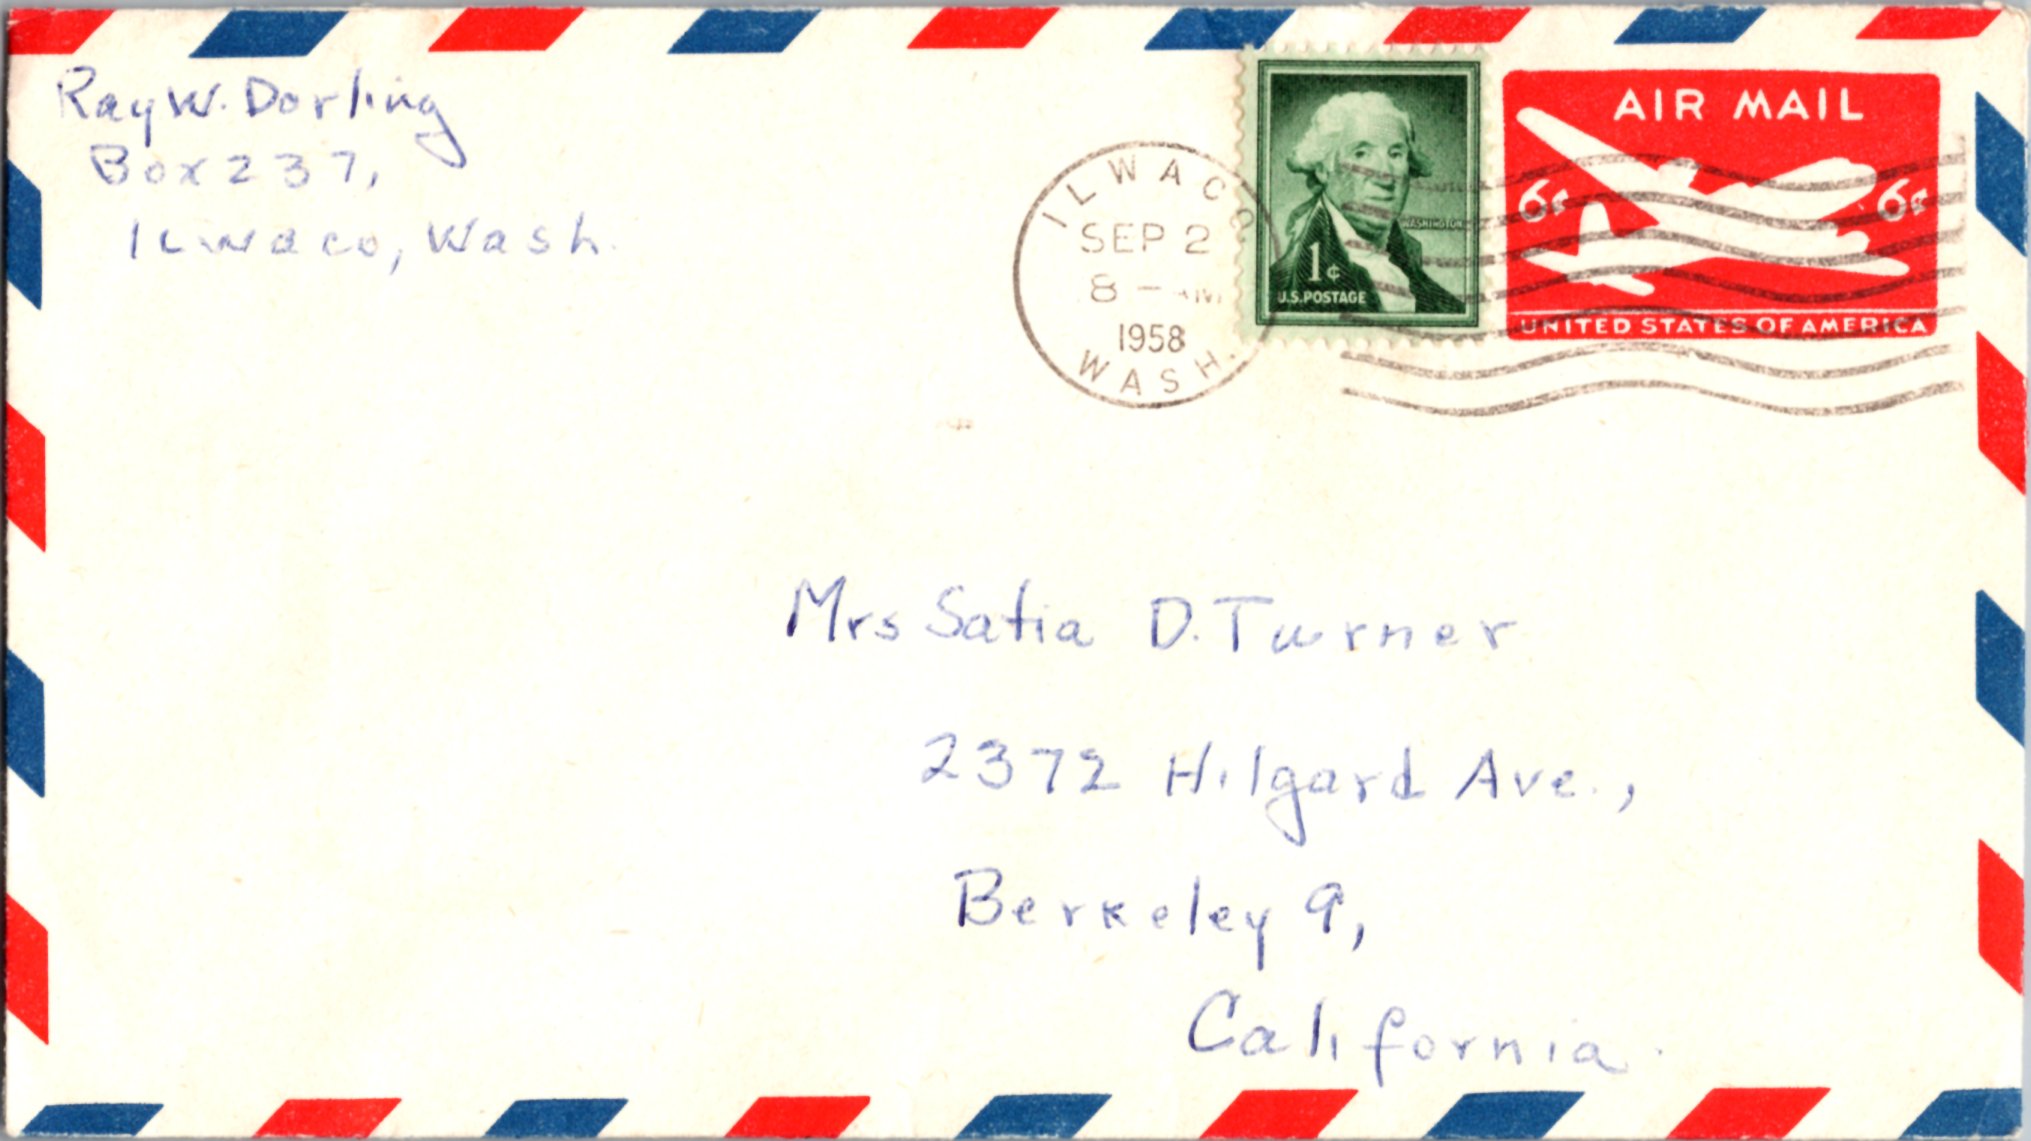 Ray W. Dorling
Box 237,
Ilwaco, Wash.
ILWACO
SEP 2
8 - AM
1958
WASH.
WASHINGTON
1¢
U.S. POSTAGE
AIR MAIL
6¢ 6¢
UNITED STATES OF AMERICA
Mrs Satia D. Turner
2372 Hilgard Ave.,
Berkeley 9,
California.